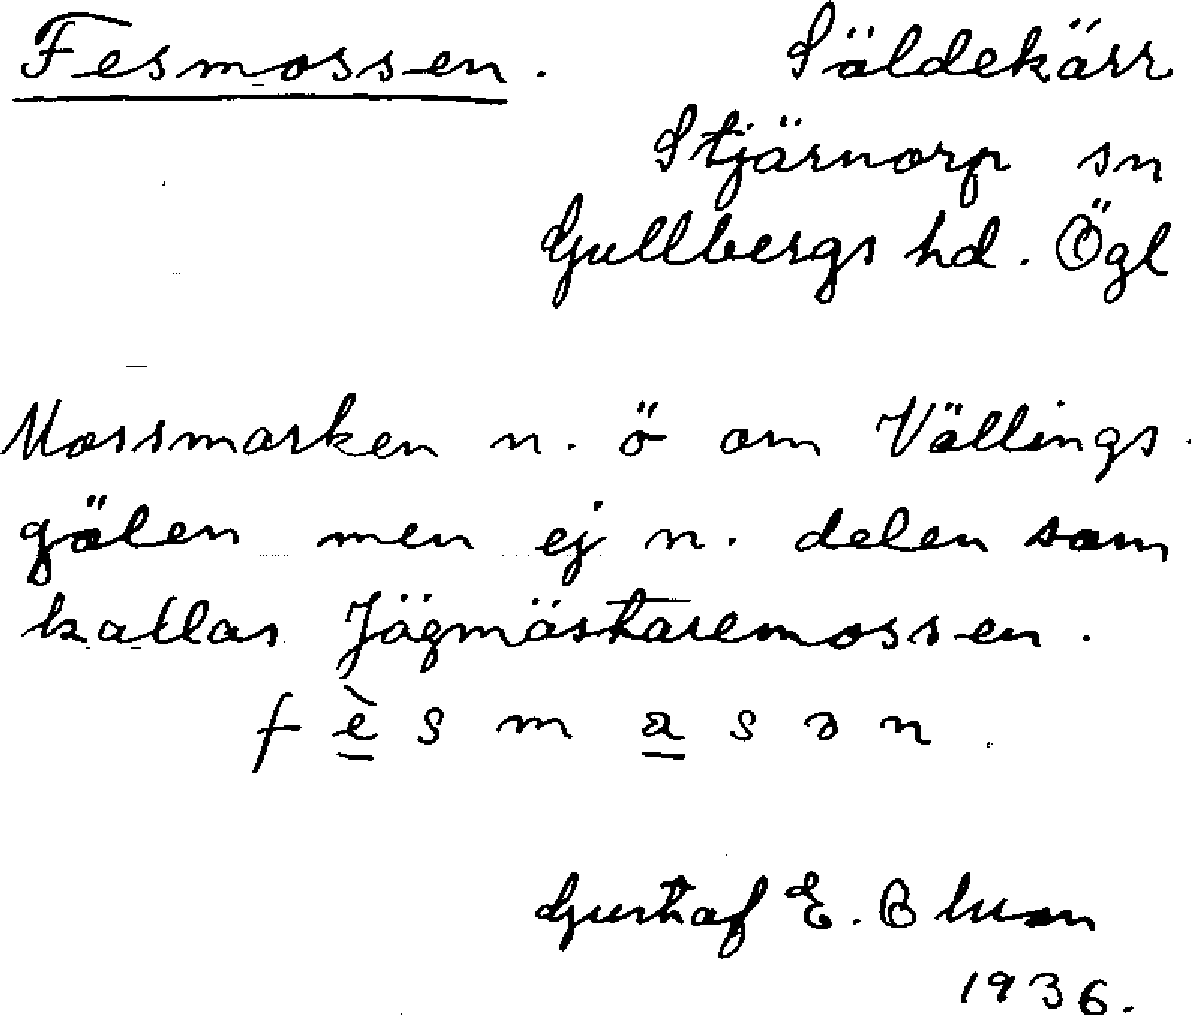 Fesmossen. Säldekärr
Stjärnorp sn
Gullbergs hd. Ögl
Mossmarken n. ö om Vällings-
gölen men ej n. delen som
kallas Jägmästaremossen.
f è s m a s ə n
Gustaf E.
1936.